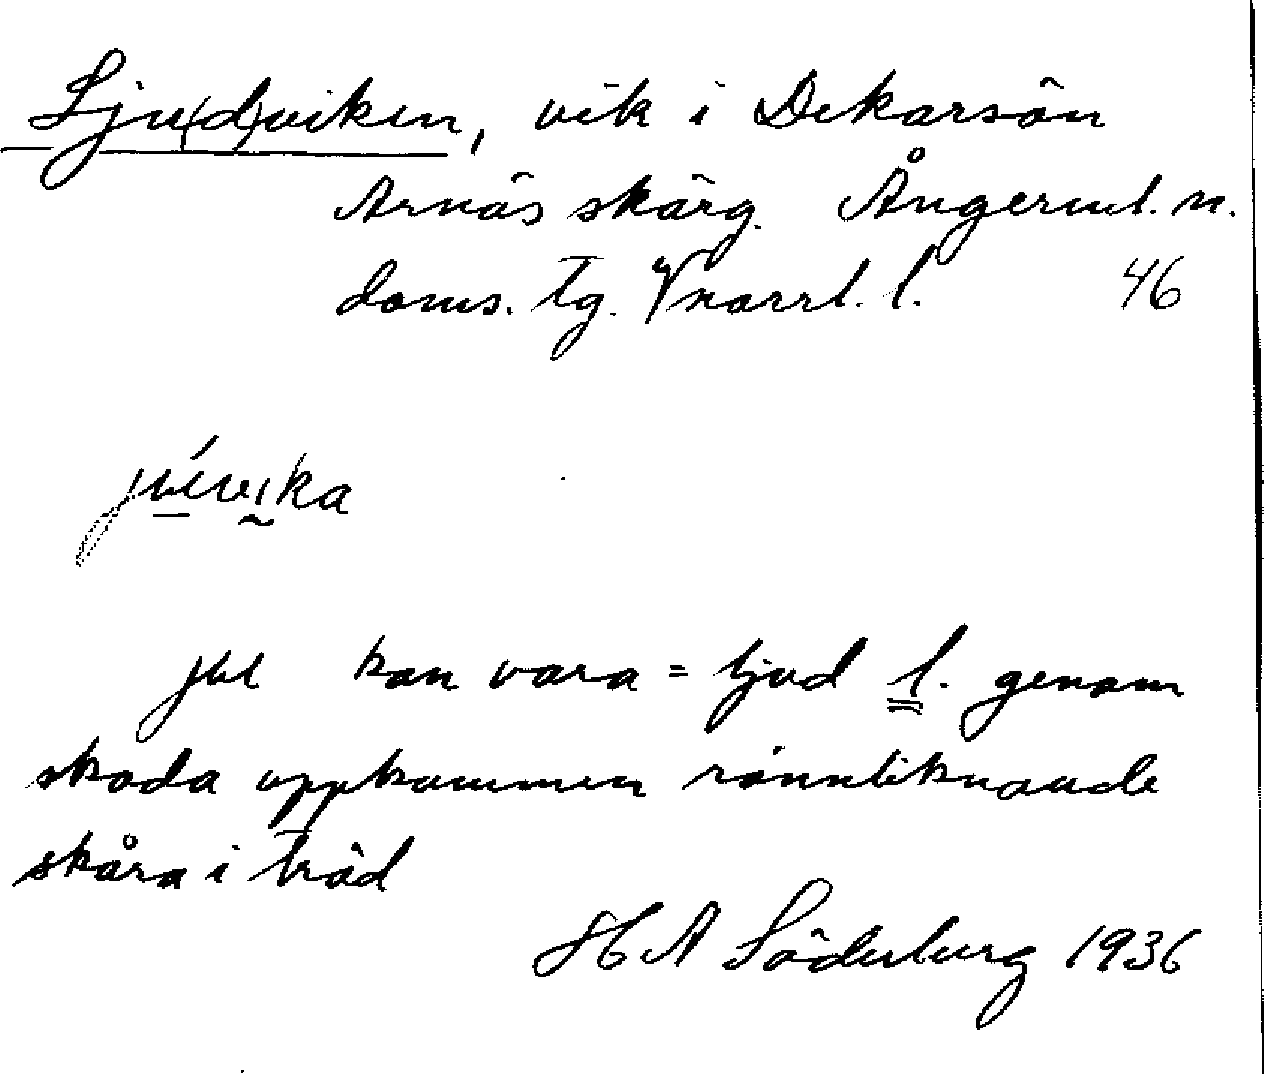 Lju(d)viken, vik i Dekarsön
Arnäs skärg. Ångerml. n.
doms. Tg. norrl. l. 46
kan vara = ljud l. genom
skada uppkommen rännliknande
skåra i träd
H A Söderberg 1936